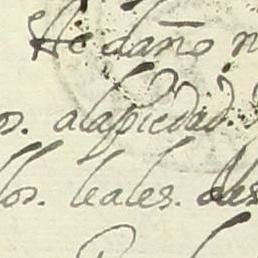 daño
os. alapiedad.
los. leales. des